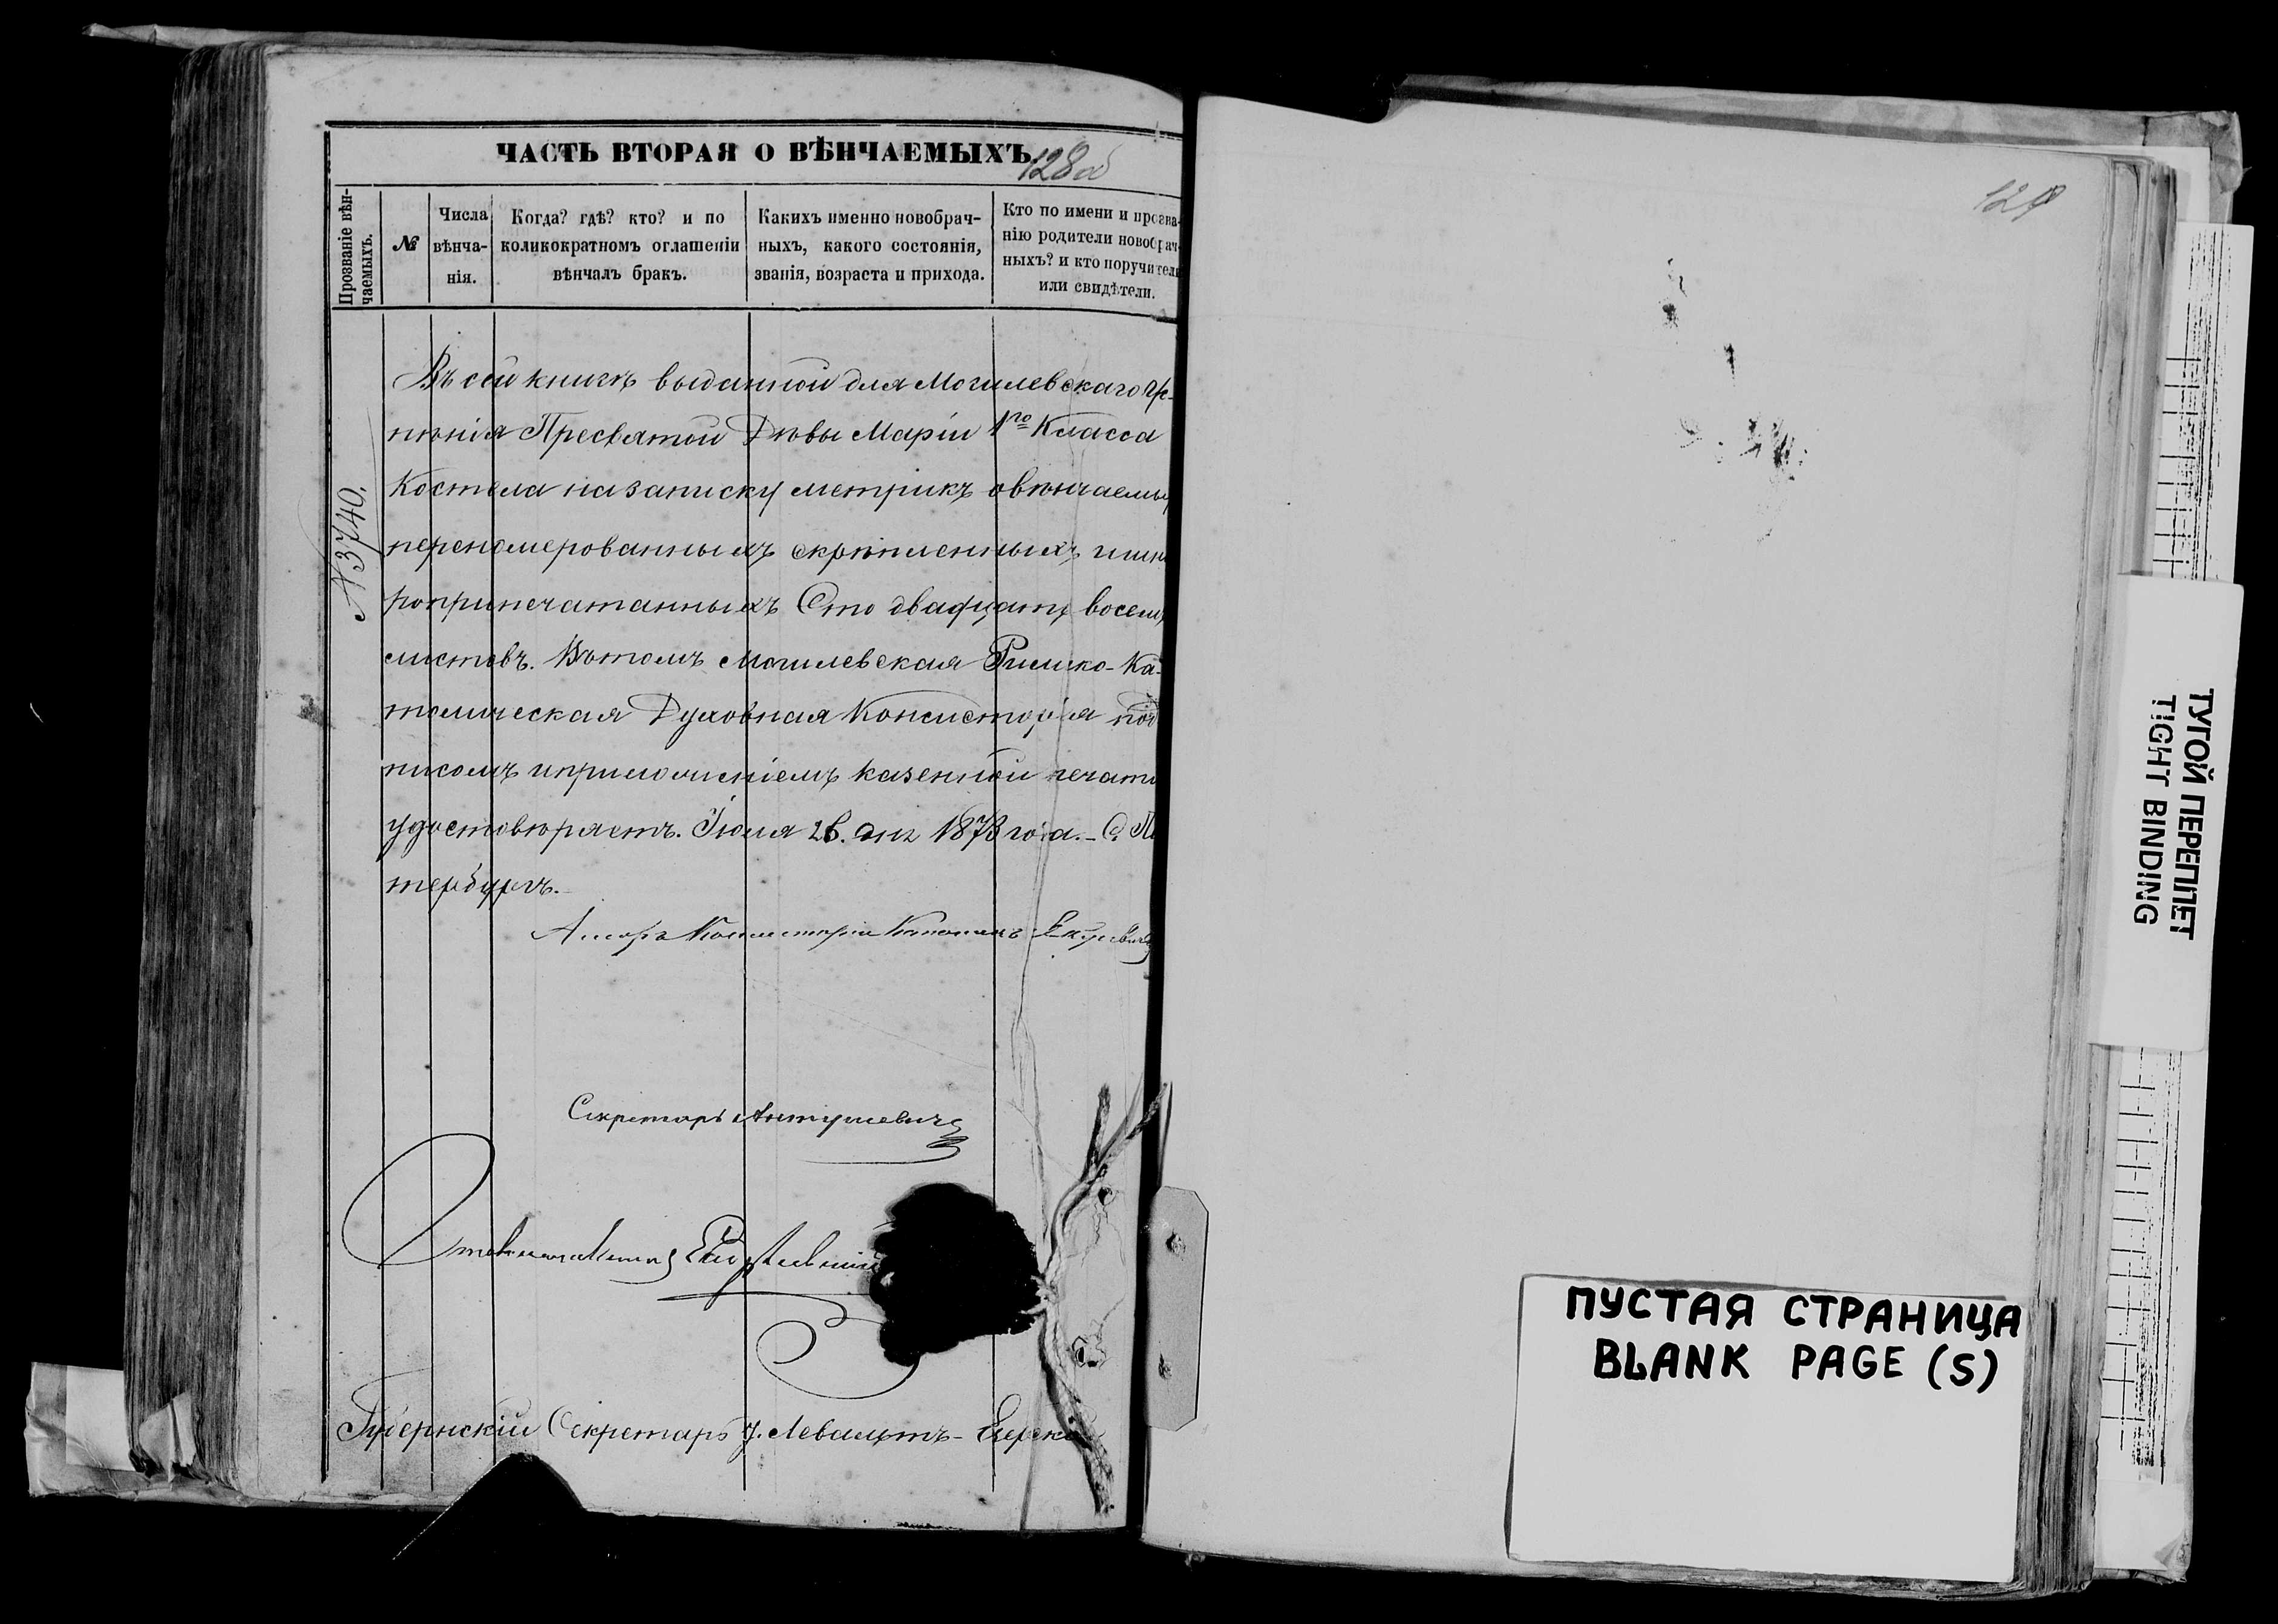 ЧАСТЬ ВТОРАЯ О ВѢНЧАЕМЫХЪ.
128 об
Прозваніе вѣн-
чаемыхъ.
№
Числа
вѣнча-
нія.
Когда? гдѣ? кто? и по
коликократномъ оглашеніи
вѣнчалъ бракъ.
Какихъ именно новобрач-
ныхъ, какого состоянія,
званія, возраста и прихода.
Кто по имени и прозва-
нію родители новобрач-
ныхъ? и кто поручители
или свидѣтели.
№ 3740.
Въ сей книгѣ выданной для Могилевскаго Ус-
пенія Пресвятой Дѣвы Маріи 1го Класса
Костела на записку метрикъ о вѣнчаемы
перенумерованныхъ скрѣпленныхъ и шну
роприпечатанныхъ Сто двадцать восемь
листовъ. Въ томъ Могилевская Римско-Ка-
толическая Духовная Консисторія под
писомъ и приложеніемъ казенной печати
удостовѣряетъ. Іюля 26. дня 1873 года. С. Пе
тербургъ.
Консисторіи
Секретарь Антушевичъ
Губернскій Секретарь
129
ТУГОЙ ПЕРЕПЛЕТ
TIGHT BINDING
ПУСТАЯ СТРАНИЦА
BLANK PAGE (S)